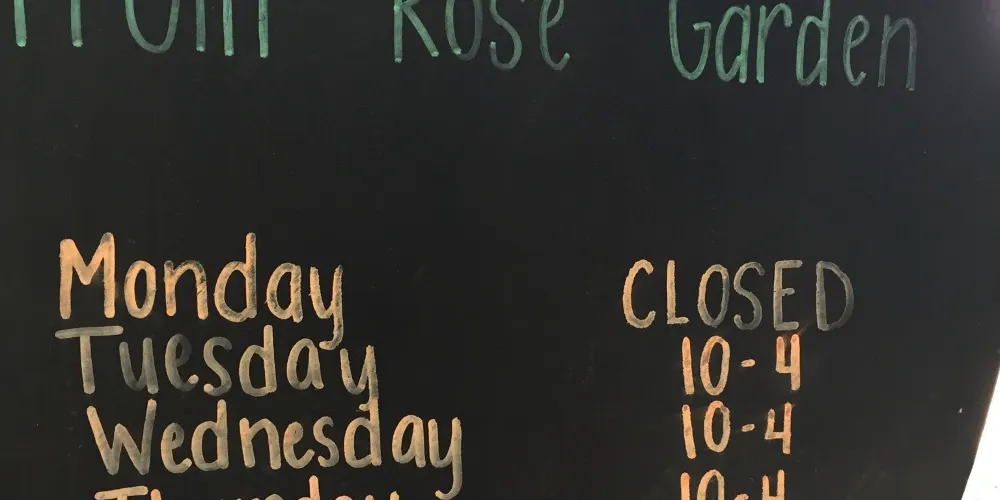 Rose Garden
Monday CLOSED
Tuesday 10-4
Wednesday 10-4
Thursday 10-4